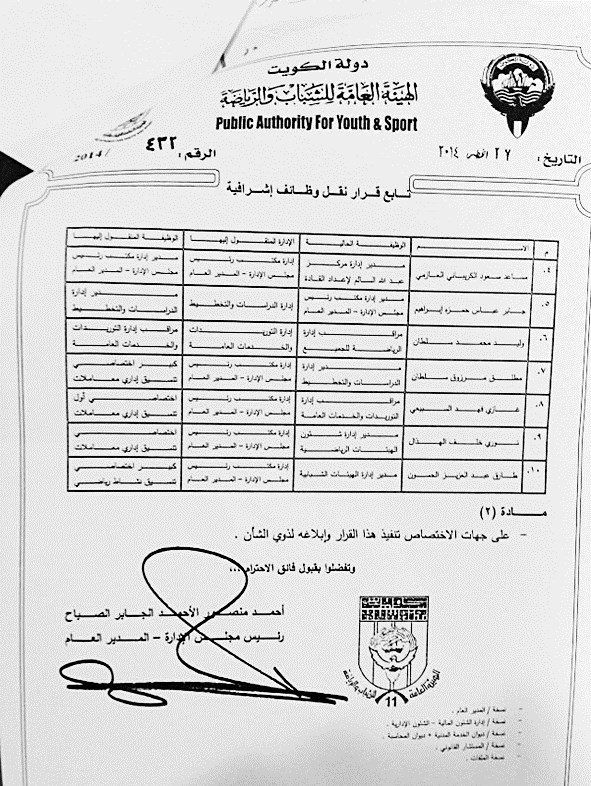 دولة الكويت
الهيئة العامة للشباب والرياضة
Public Authority For Youth & Sport
التاريخ: ٢٧ ٢٠١٤
الرقم: ٤٣٢
2014/
تابع قرار نقل وظائف إشرافية
م الاسم الوظيفة الحالية الإدارة المنقول إليها الوظيفة المنقول إليها
٠٤ مساعد سعود الكريباني العازمي مدير إدارة مركز عبد الله السالم لإعداد القادة إدارة مكتب رئيس مجلس الإدارة - المدير العام مدير إدارة مكتب رئيس مجلس الإدارة - المدير العام
٠٥ جابر عباس حمزه إبراهيم مدير إدارة مكتب رئيس مجلس الإدارة - المدير العام إدارة الدراسات والتخطيط مدير إدارة الدراسات والتخطيط
٠٦ وليد محمد سلطان مراقب إدارة الرياضة للجميع إدارة التوريدات والخدمات العامة مراقب إدارة التوريدات والخدمات العامة
٠٧ مطلق مرزوق سلطان مدير إدارة الدراسات والتخطيط إدارة مكتب رئيس مجلس الإدارة - المدير العام كبير اختصاصي تنسيق إداري معاملات
٠٨ غازي فهد السبيعي مراقب إدارة التوريدات والخدمات العامة إدارة مكتب رئيس مجلس الإدارة - المدير العام اختصاصي أول تنسيق إداري معاملات
٠٩ نوري خلف الهذال مدير إدارة شئون الهيئات الرياضية إدارة مكتب رئيس مجلس الإدارة - المدير العام اختصاصي تنسيق إداري معاملات
٠١٠ طارق عبد العزيز الحمون مدير إدارة الهيئات الشبابية إدارة مكتب رئيس مجلس الإدارة - المدير العام كبير اختصاصي تنسيق نشاط رياضي
مادة (٢)
- على جهات الاختصاص تنفيذ هذا القرار وإبلاغه لذوي الشأن .
وتفضلوا بقبول فائق الاحترام ،،،
أحمد منصور الأحمد الجابر الصباح
رئيس مجلس الإدارة - المدير العام
الكويت
KUWAIT
الهيئة العامة للشباب والرياضة
11
- نسخة / المدير العام .
- نسخة / إدارة الشئون المالية - الشئون الإدارية .
- نسخة / ديوان الخدمة المدنية + ديوان المحاسبة .
- نسخة / المستشار القانوني .
- نسخة الملفات .